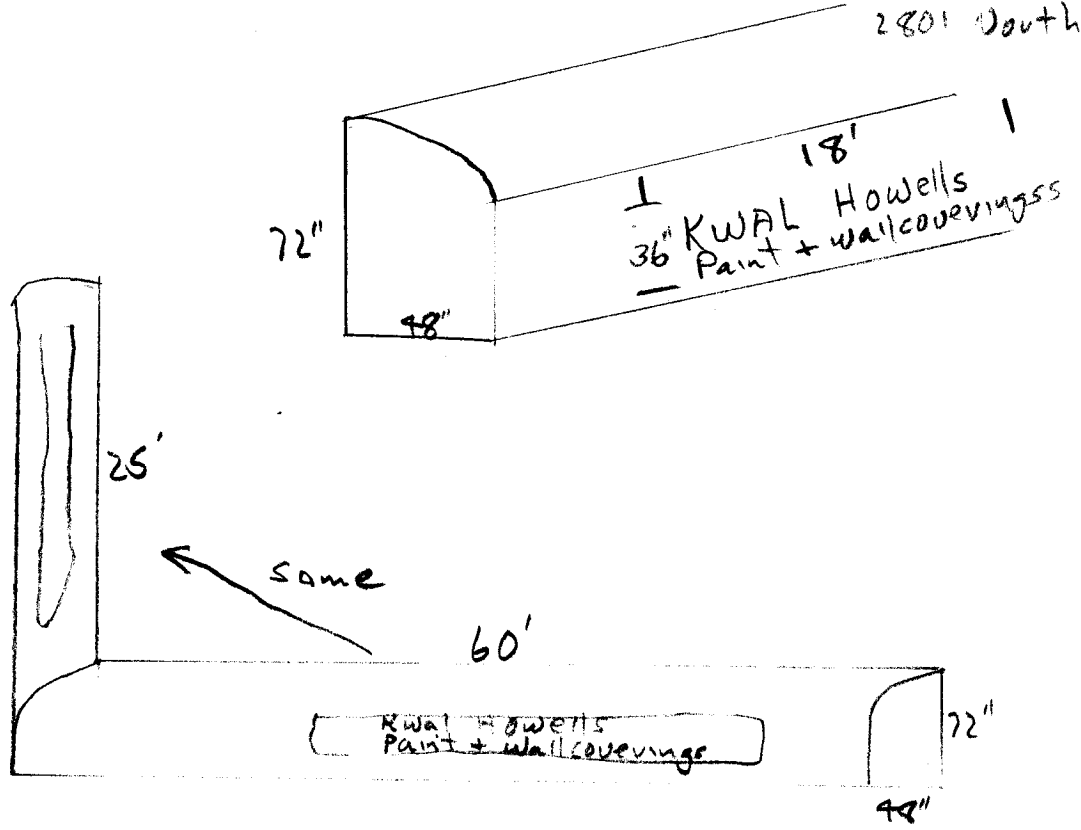 2801 South
18'
36" KWAL Howells
Paint + wallcoveringss
72"
48"
25'
same
60'
Kwal Howells
Paint + wallcoverings
72"
48"